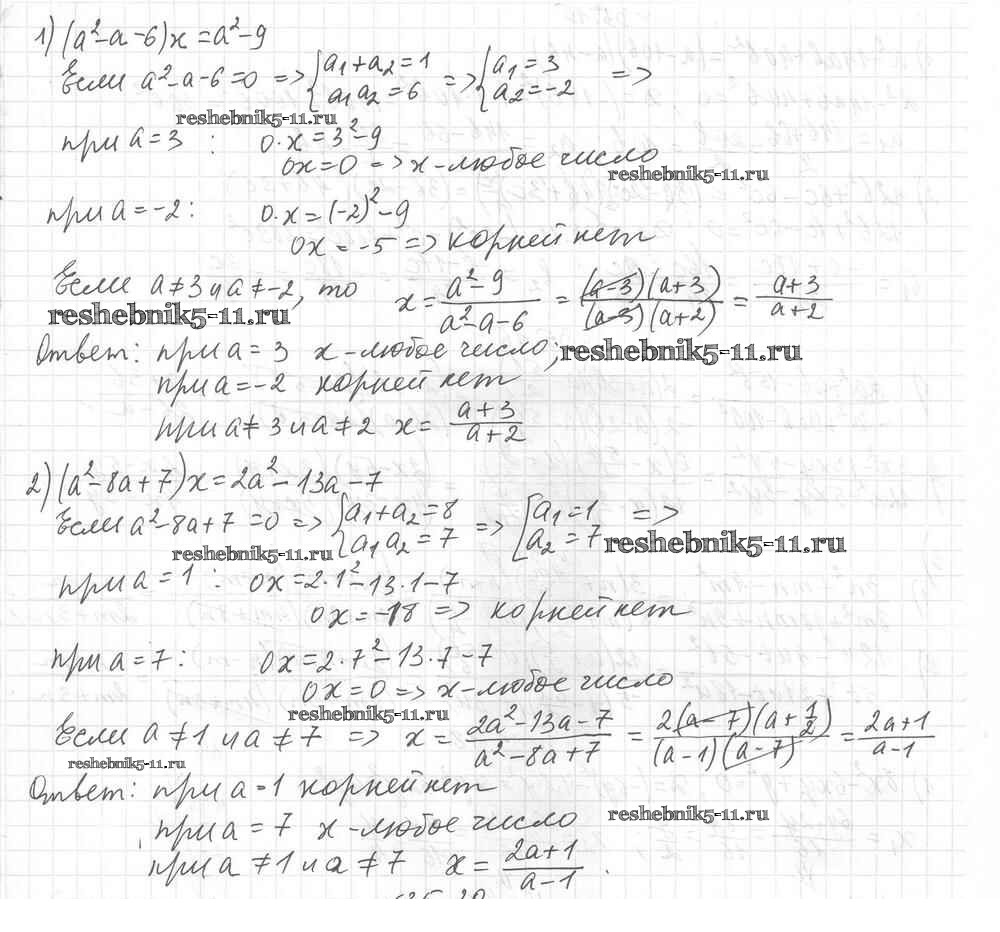 1) (a²-a-6)x = a²-9
Если a²-a-6=0 => { a₁+a₂=1 a₁a₂=6 => { a₁=3 a₂=-2 =>
reshebnik5-11.ru
при a=3 : 0·x=3²-9
0x=0 => x-любое число
reshebnik5-11.ru
при a=-2: 0·x=(-2)²-9
0x=-5 => корней нет
Если a≠3 и a≠-2, то x = (a²-9)/(a²-a-6) = ((a-3)(a+3))/((a-3)(a+2)) = (a+3)/(a+2)
reshebnik5-11.ru
Ответ: при a=3 x-любое число;
reshebnik5-11.ru
при a=-2 корней нет
при a≠3 и a≠2 x = (a+3)/(a+2)
2) (a²-8a+7)x=2a²-13a-7
Если a²-8a+7=0 => { a₁+a₂=8 a₁a₂=7 => [ a₁=1 a₂=7 =>
reshebnik5-11.ru
reshebnik5-11.ru
при a=1 : 0x=2·1²-13·1-7
0x=-18 => корней нет
при a=7: 0x=2·7²-13·7-7
0x=0 => x-любое число
reshebnik5-11.ru
Если a≠1 и a≠7 => x = (2a²-13a-7)/(a²-8a+7) = (2(a-7)(a+1/2))/((a-1)(a-7)) = (2a+1)/(a-1)
reshebnik5-11.ru
Ответ: при a=1 корней нет
reshebnik5-11.ru
при a=7 x-любое число
при a≠1 и a≠7 x = (2a+1)/(a-1).